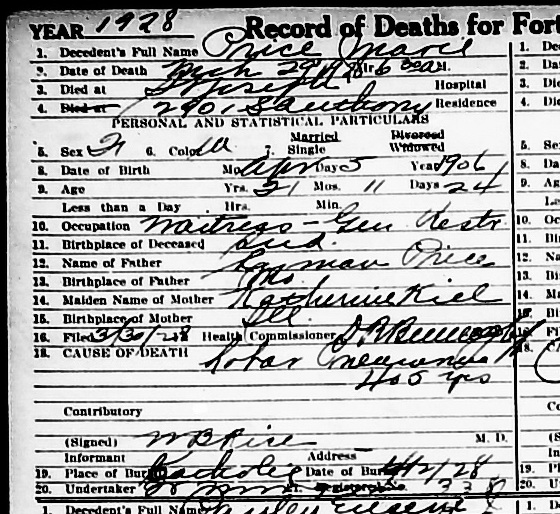 YEAR 1928 Record of Deaths for For
1. Decedent's Full Name Price Marie
2. Date of Death Mch 29 1928 6 30 a M.
3. Died at St Joseph Hospital
4. Died at 2901 S Anthony Residence
PERSONAL AND STATISTICAL PARTICULARS
Married Divorced
5. Sex F 6. Color W 7. Single Widowed
8. Date of Birth Mo. Apr Day 5 Year 1906
9. Age Yrs. 21 Mos. 11 Days 24
Less than a Day Hrs. Min.
10. Occupation Waitress - Gen Restr
11. Birthplace of Deceased Ind.
12. Name of Father Price
13. Birthplace of Father
14. Maiden Name of Mother Katherine Kiel
15. Birthplace of Mother Ill
16. Filed 3/30/28 Health Commissioner
18. CAUSE OF DEATH Lobar Pneumonia
Contributory
(Signed) W B Rice M. D.
Informant Address
19. Place of Burial Catholic Date of Burial 4/2/28
20. Undertaker
1. Decedent's Full Name